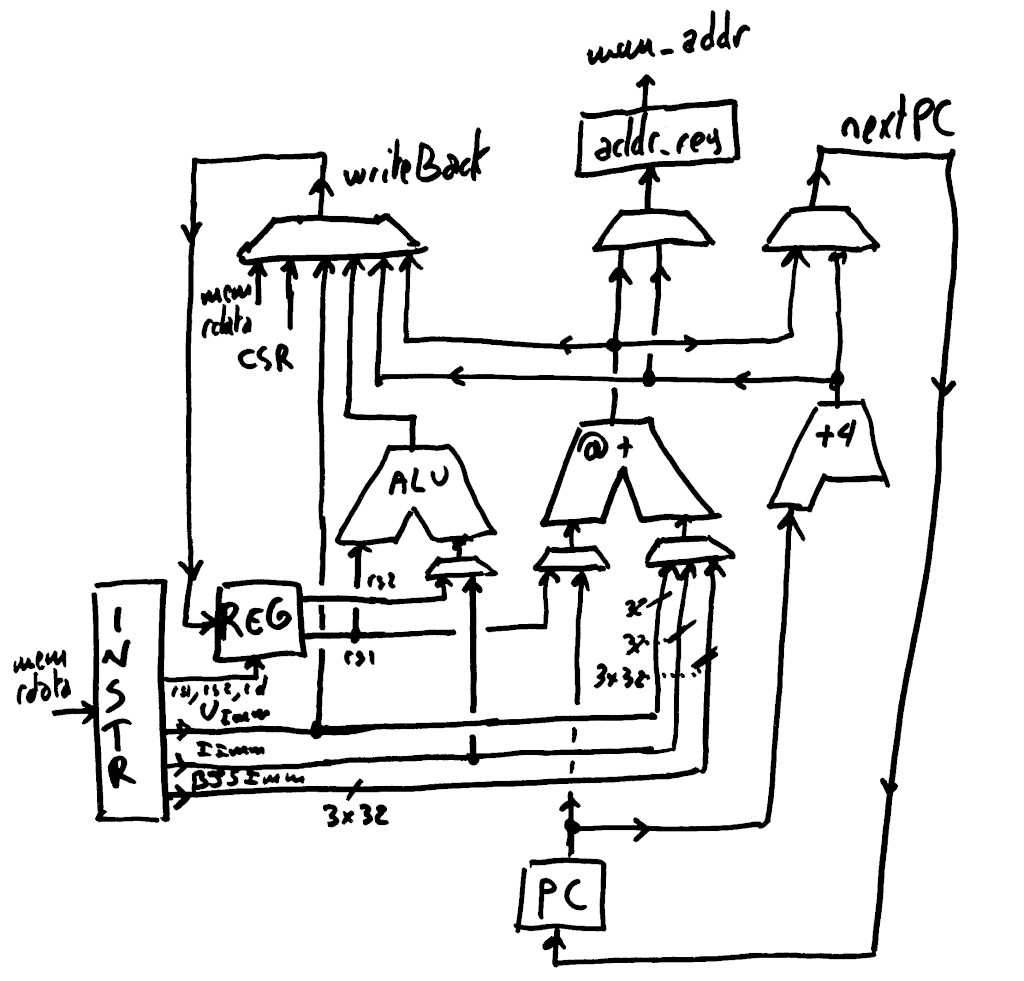 mem_addr
addr_reg
nextPC
writeBack
mem
rdata
CSR
ALU
@ +
+4
rs2
REG
rs1
32
32
3x32
INSTR
mem
rdata
rs1, rs2, rd
UImm
IImm
BJSImm
3x32
PC